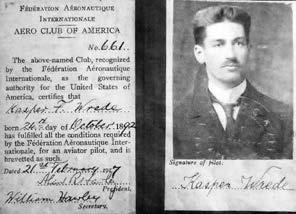 FÉDÉRATION AÉRONAUTIQUE
INTERNATIONALE
AERO CLUB OF AMERICA
No. 661.
The above-named Club, recognized
by the Fédération Aéronautique
Internationale, as the governing
authority for the United States of
America, certifies that
Kasper F. Wrede
born 26th day of October 1892
has fulfilled all the conditions required
by the Fédération Aéronautique Internationale, for an aviator pilot, and is
brevetted as such.
Dated 21st February 1917
President,
William Hawley
Secretary.
Signature of pilot:
Kasper Wrede